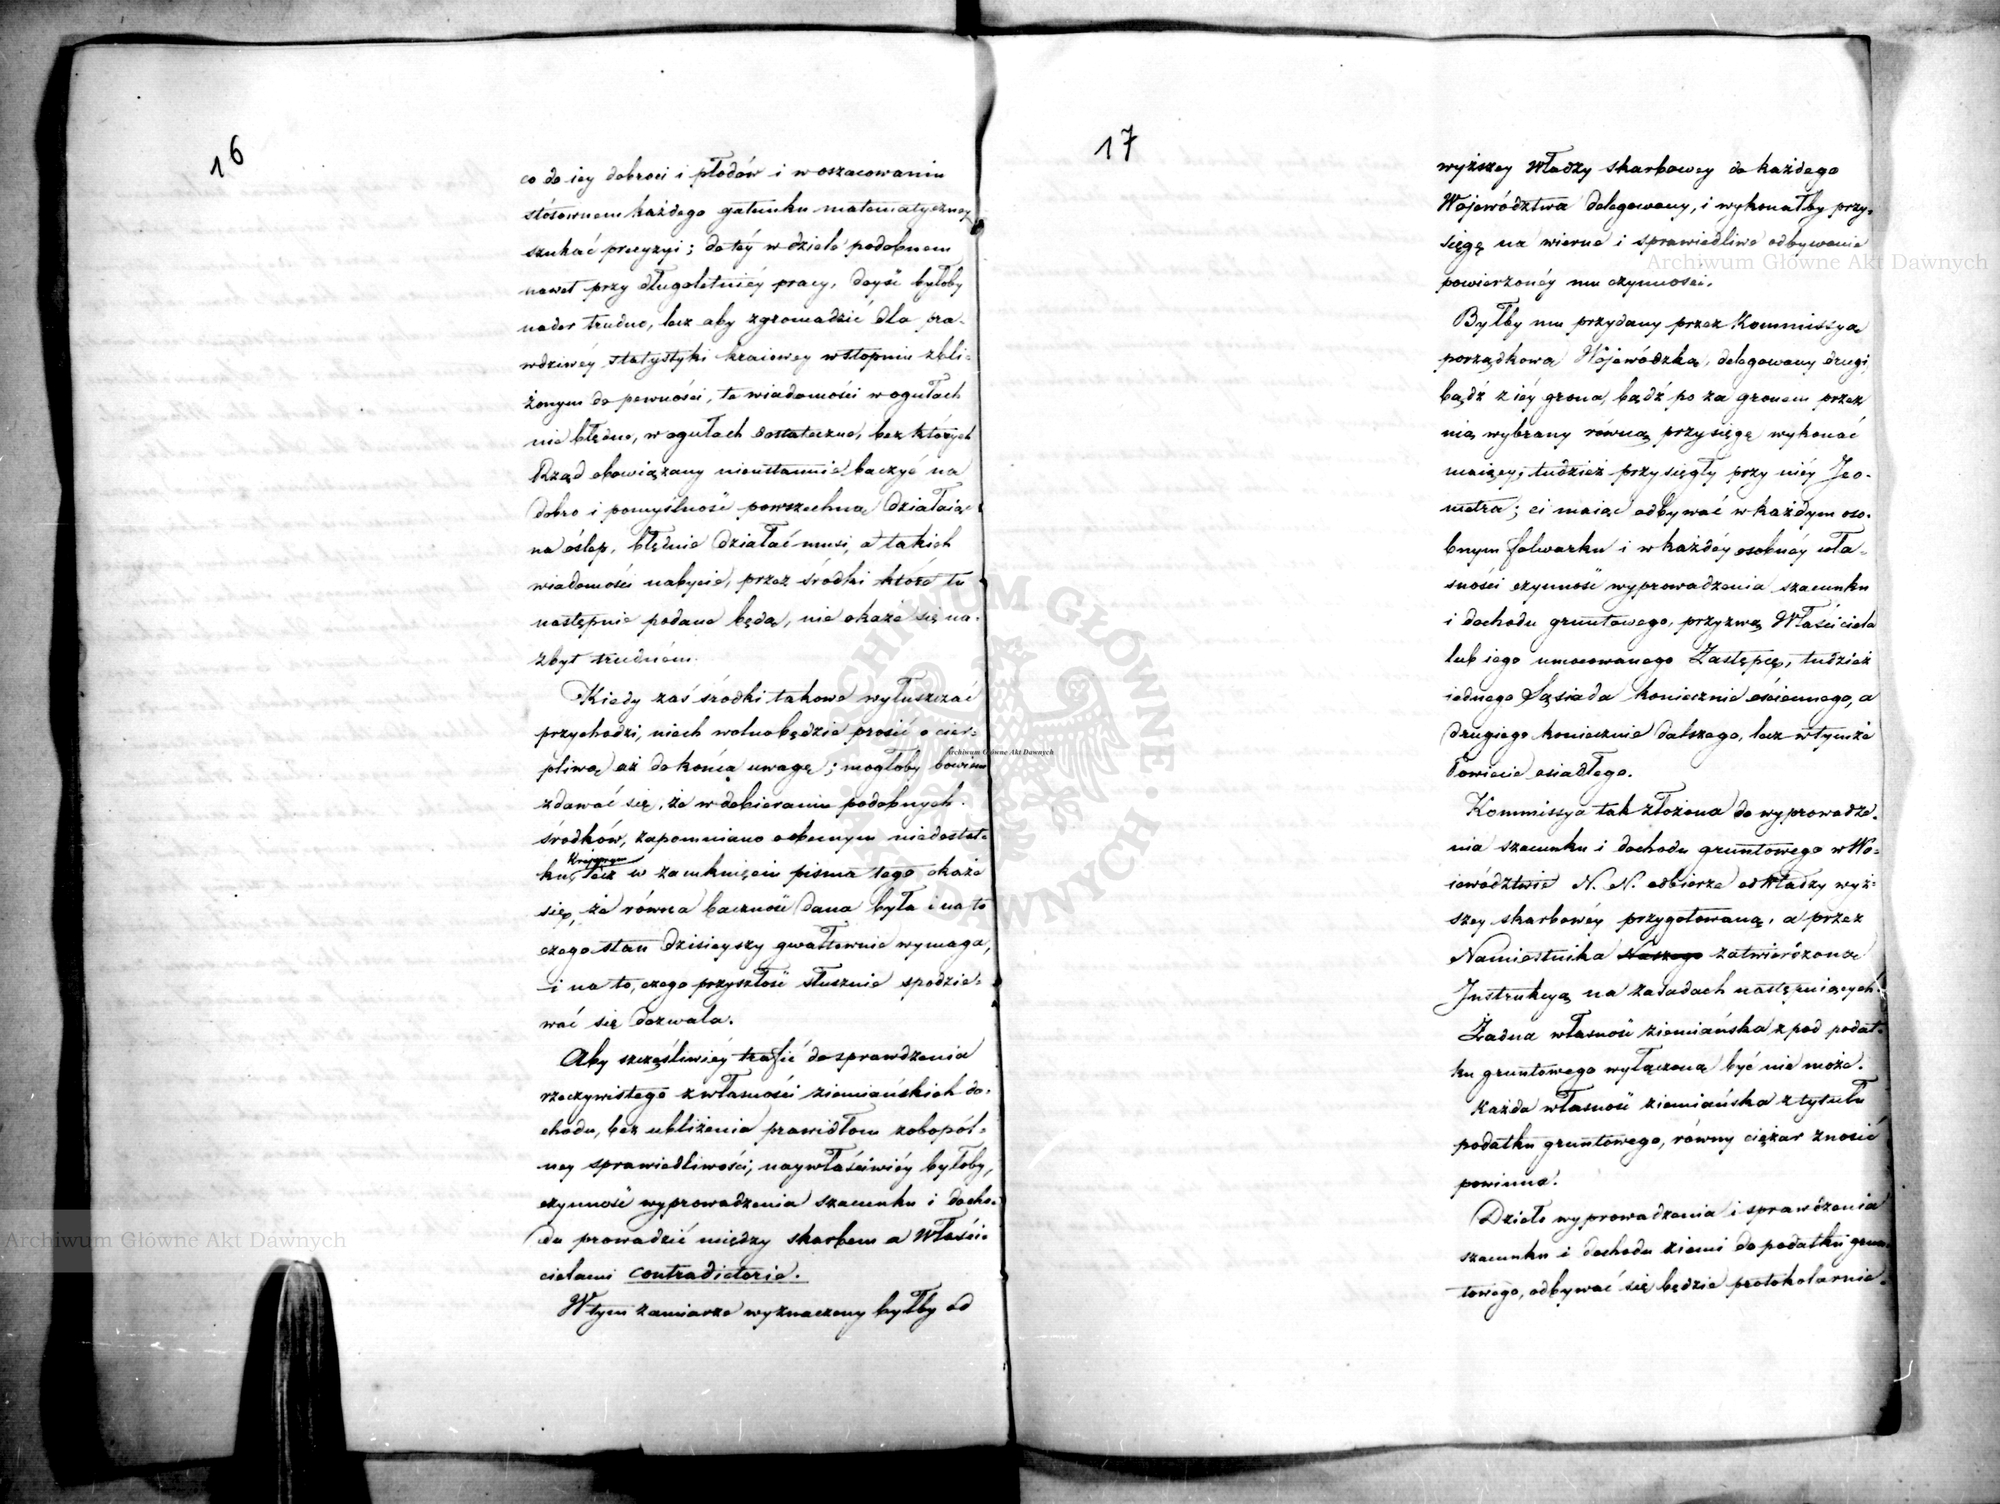 16
co do iey dobroci i płodów i w oszacowaniu
stósownem każdego gatunku matematyczney
szukać precyzyi; do téy w dziele podobnem
nawet przy długoletniéy pracy, doyść byłoby
nader trudno, lecz aby zgromadzić dla pra-
wdziwéy statystyki kraiowey w stopniu zbli-
żonym do pewności, te wiadomości w ogułach
nie błędne, w ogułach dostateczne, bez których
Rząd obowiązany nieustannie baczyć na
dobro i pomyślność powszechną działaiąc
na oślep, błędnie działać musi, a takich
wiadomości nabycie, przez środki które tu
następnie podane będą, nie okaże się na-
zbyt trudném.
Kiedy zaś środki takowe wyłuszczać
przychodzi, niech wolno będzie prosić o cier-
pliwą aż do końca uwagę; mogłoby bowiem
zdawać się, że w dobieraniu podobnych
środków, zapomniano o obecnym niedostat-
ku, lecz w zamknięciu pisma tego okaże
się, że równa baczność dana była i na to
czego stan dzisieyszy gwałtownie wymaga,
i na to, czego przyszłość słusznie spodzie-
wać się dozwala.
Aby szczęśliwiéy trafić do sprawdzenia
rzeczywistego z własności ziemiańskich do-
chodu, bez ubliżenia prawidłom zobopól-
ney sprawiedliwości, naywłaściwiéy byłoby,
czynność wyprowadzenia szacunku i docho-
du prowadzić między skarbem a Właści-
cielami contradictorie.
W tym zamiarze wyznaczony byłby od
17
wyższey Władzy skarbowey do każdego
Województwa delegowany, i wykonałby przy-
sięgę na wierne i sprawiedliwe odbywanie
powierzonéy mu czynności.
Byłby mu przydany przez Kommissyą
porządkową Wojewódzką, delegowany drugi,
bądź z iéy grona, bądź po za gronem przez
nią wybrany równą przysięgę wykonać
maiący; tudzież przysięgły przy niéy Jeo-
metra; ci maiąc odbywać w każdym oso-
bnym folwarku i w każdéy osobnéy wła-
sności czynność wyprowadzenia szacunku
i dochodu gruntowego, przyzwą Właściciela
lub iego umocowanego Zastępcę, tudzież
iednego Sąsiada koniecznie ościennego, a
drugiego koniecznie dalszego, lecz w tymże
Powiecie osiadłego.
Kommissya tak złożona do wyprowadze-
nia szacunku i dochodu gruntowego w Wo-
iewództwie N. N. odbierze od Władzy wyż-
szey skarbowéy przygotowaną, a przez
Namiestnika Naszego zatwierdzoną
Instrukcyą na zasadach następuiących.
Żadna własność ziemiańska z pod podat-
ku gruntowego wyłączoną być nie może.
Każda własność ziemiańska z tytułu
podatku gruntowego, równy ciężar znosić
powinna.
Dzieło wyprowadzenia i sprawdzenia
szacunku i dochodu ziemi do podatku grun-
towego, odbywać się będzie protokolarnie.
Archiwum Główne Akt Dawnych
Archiwum Główne Akt Dawnych
Archiwum Główne Akt Dawnych
ARCHIWUM GŁÓWNE AKT DAWNYCH